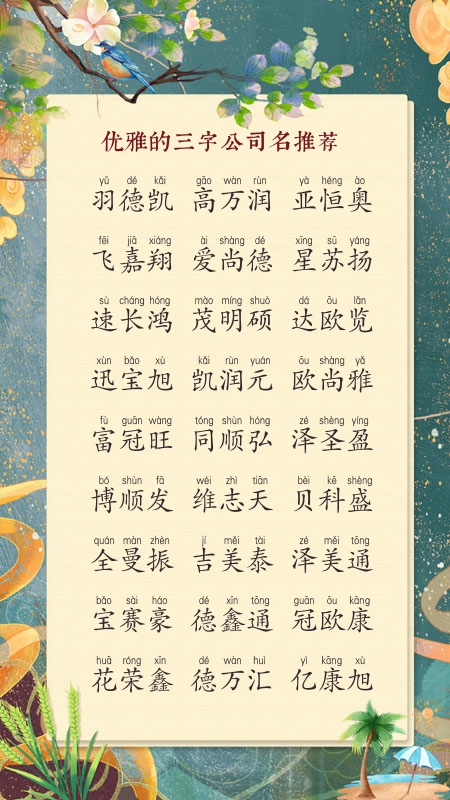 优雅的三字公司名推荐
yǔ dé kǎi gāo wàn rùn yà héng ào
羽德凯 高万润 亚恒奥
fēi jiā xiáng ài shàng dé xīng sū yáng
飞嘉翔 爱尚德 星苏扬
sù cháng hóng mào míng shuò dá ōu lǎn
速长鸿 茂明硕 达欧览
xùn bǎo xù kǎi rùn yuán ōu shàng yǎ
迅宝旭 凯润元 欧尚雅
fù guān wàng tóng shùn hóng zé shèng yíng
富冠旺 同顺弘 泽圣盈
bó shùn fā wéi zhì tiān bèi kē shèng
博顺发 维志天 贝科盛
quán màn zhèn jí měi tài zé měi tōng
全曼振 吉美泰 泽美通
bǎo sài háo dé xīn tōng guān ōu kāng
宝赛豪 德鑫通 冠欧康
huā róng xīn dé wàn huì yì kāng xù
花荣鑫 德万汇 亿康旭